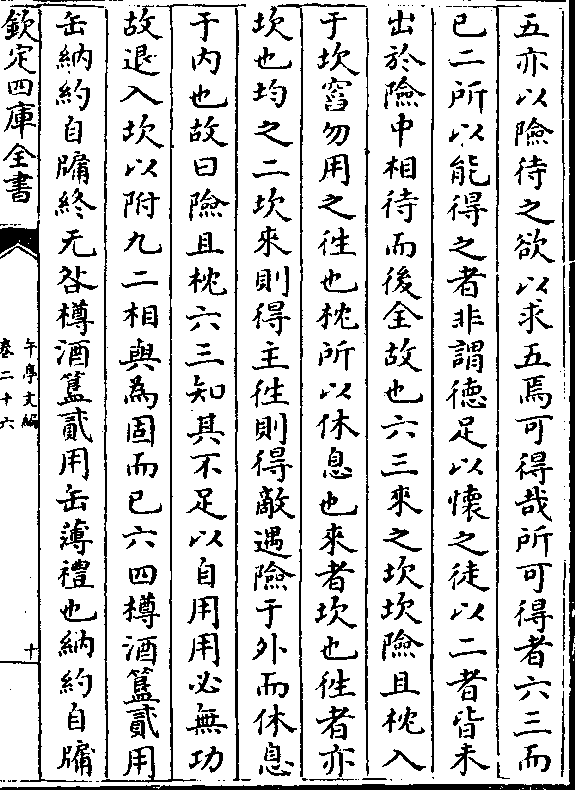 五亦以險待之欲以求五焉可得哉所可得者六三而
已二所以能得之者非謂德足以懷之徒以二者皆未
出於險中相待而後全故也六三來之坎坎險且枕入
于坎窞勿用之徃也枕所以休息也來者坎也徃者亦
坎也均之二坎來則得主徃則得敵遇險于外而休息
于内也故曰險且枕六三知其不足以自用用必無功
故退入坎以附九二相與為固而已六四樽酒簋貳用
缶納約自牖終无咎樽酒簋貳用缶薄禮也納約自牖
欽定四庫全書
文編
卷二十六
十